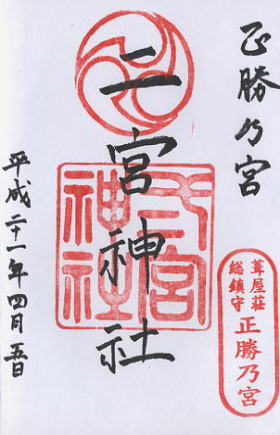 正勝乃宮
葺屋荘
総鎮守
正勝乃宮
二宮神社
宮
神社
平成二十一年四月五日